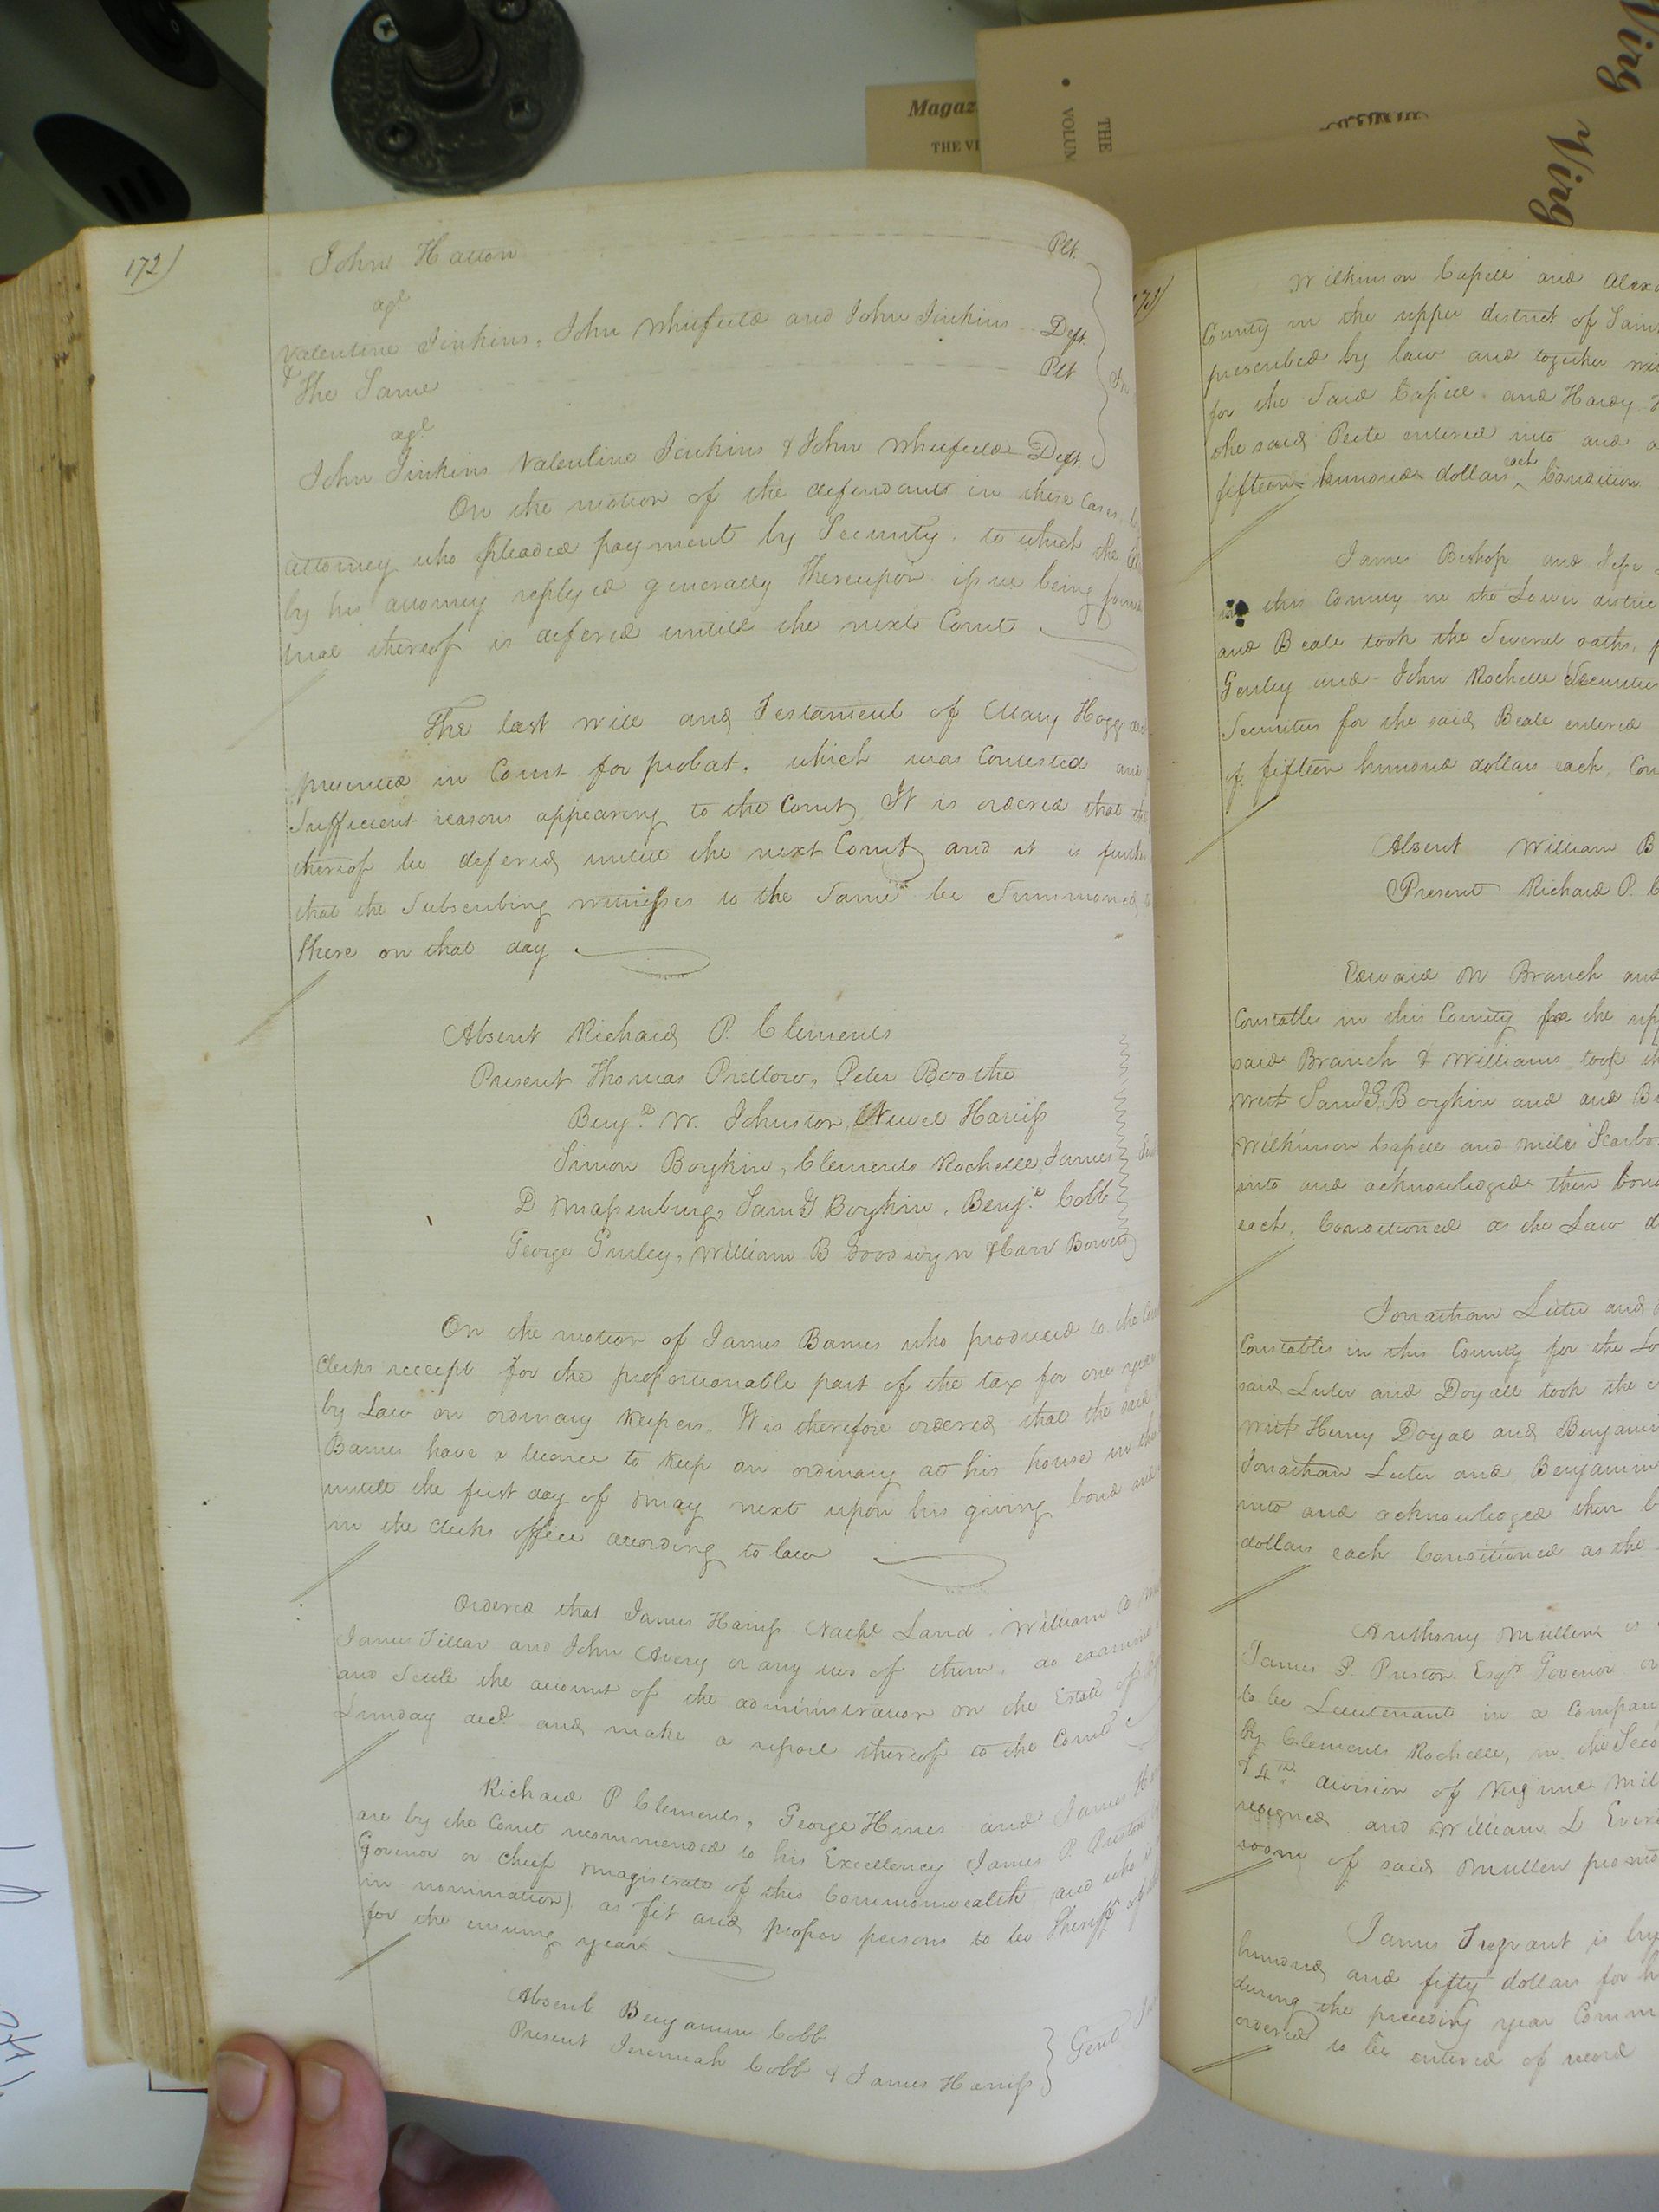 Magaz
THE VI
THE
VOLUM
Virg
Virg
172)
John Hatton Plt.
agt
Valentine Jinkins, John Whitfield and John Jinkins Deft.
& The Same Plt
agt
John Jinkins Valentine Jenkins & John Whitfield Deft.
On the motion of the defendants in these Cases,
attorney who pleaded payment by Security, to which the
by his attorney replyed generally thereupon issue being
trial thereof is defered untill the next Court
The last Will and Testament of Mary
presented in Court for probat, which was Contested and
Sufficient reasons appearing to the Court, It is ordered that the
thereof be defered untill the next Court and it is further
that the Subscribing witnesses to the Same be Summoned
there on that day
Absent Richard P. Clements
Present Thomas Pretlow, Peter Boothe
Benja. W. Johnston, Newel Harriss
Simon Boykin, Clements Rochelle, James
D Massenburg, Sam G Boykin, Benja. Cobb
George Gurley, William B Goodwyn & Carr Bowers
On the motion of James Barnes who produced to the
Clerks receipt for the proportionable part of the tax for one year
by Law on ordinary Keepers. It is therefore ordered that the said
Barnes have a licence to Keep an ordinary at his house in the
untill the first day of May next upon his giving bond and
in the Clerks office according to law
Ordered that James Harriss Nathl Land, William
James Tillar and John Avery or any two of them, do examine
and Settle the account of the administration on the Estate of
Lunday decd. and make a report thereof to the Court
Richard P Clements, George Hines and James
are by the Court recommended to his Excellency James P. Preston
Govenor or Chief Magistrate of this Commonwealth and who is
in nomination) as fit and proper persons to be Sheriff of
for the ensuing year.
Absent Benjamin Cobb
Present Jeremiah Cobb & James Harriss } Gent
Wilkinson Capell and
County in the upper district of
prescribed by law and together
for the Said Capell and Hardy
the said Peete entered into and
fifteen hundred dollars each, Condition
James Bishop and Jesse
this County in the Lower
and Beale took the Several oaths,
Gurley and John Rochelle Securities
Securities for the said Beale entered
of fifteen hundred dollars each,
Absent William B
Present Richard P.
Edward M Branch and
Constables in this County for the
said Branch & Williams took
with Sam G. Boykin and and
Wilkinson Capell and Miles
into and acknowledged their bond
each, Conditioned as the Law
Jonathan Luter and
Constables in this County for the
said Luter and Doyall took the
with Henry Doyal and Benjamin
Jonathan Luter and Benjamin
into and acknowledged their
dollars each Conditioned as the
Anthony Mullen is
James P Preston Esqr. Govenor or
to be Lieutenant in a Company
By Clements Rochelle, in the
& 4th division of Virginia
resigned and William L
room of said Mullen
James Trezvant is
hundred and fifty dollars for
during the preceeding year
ordered to be entered of record